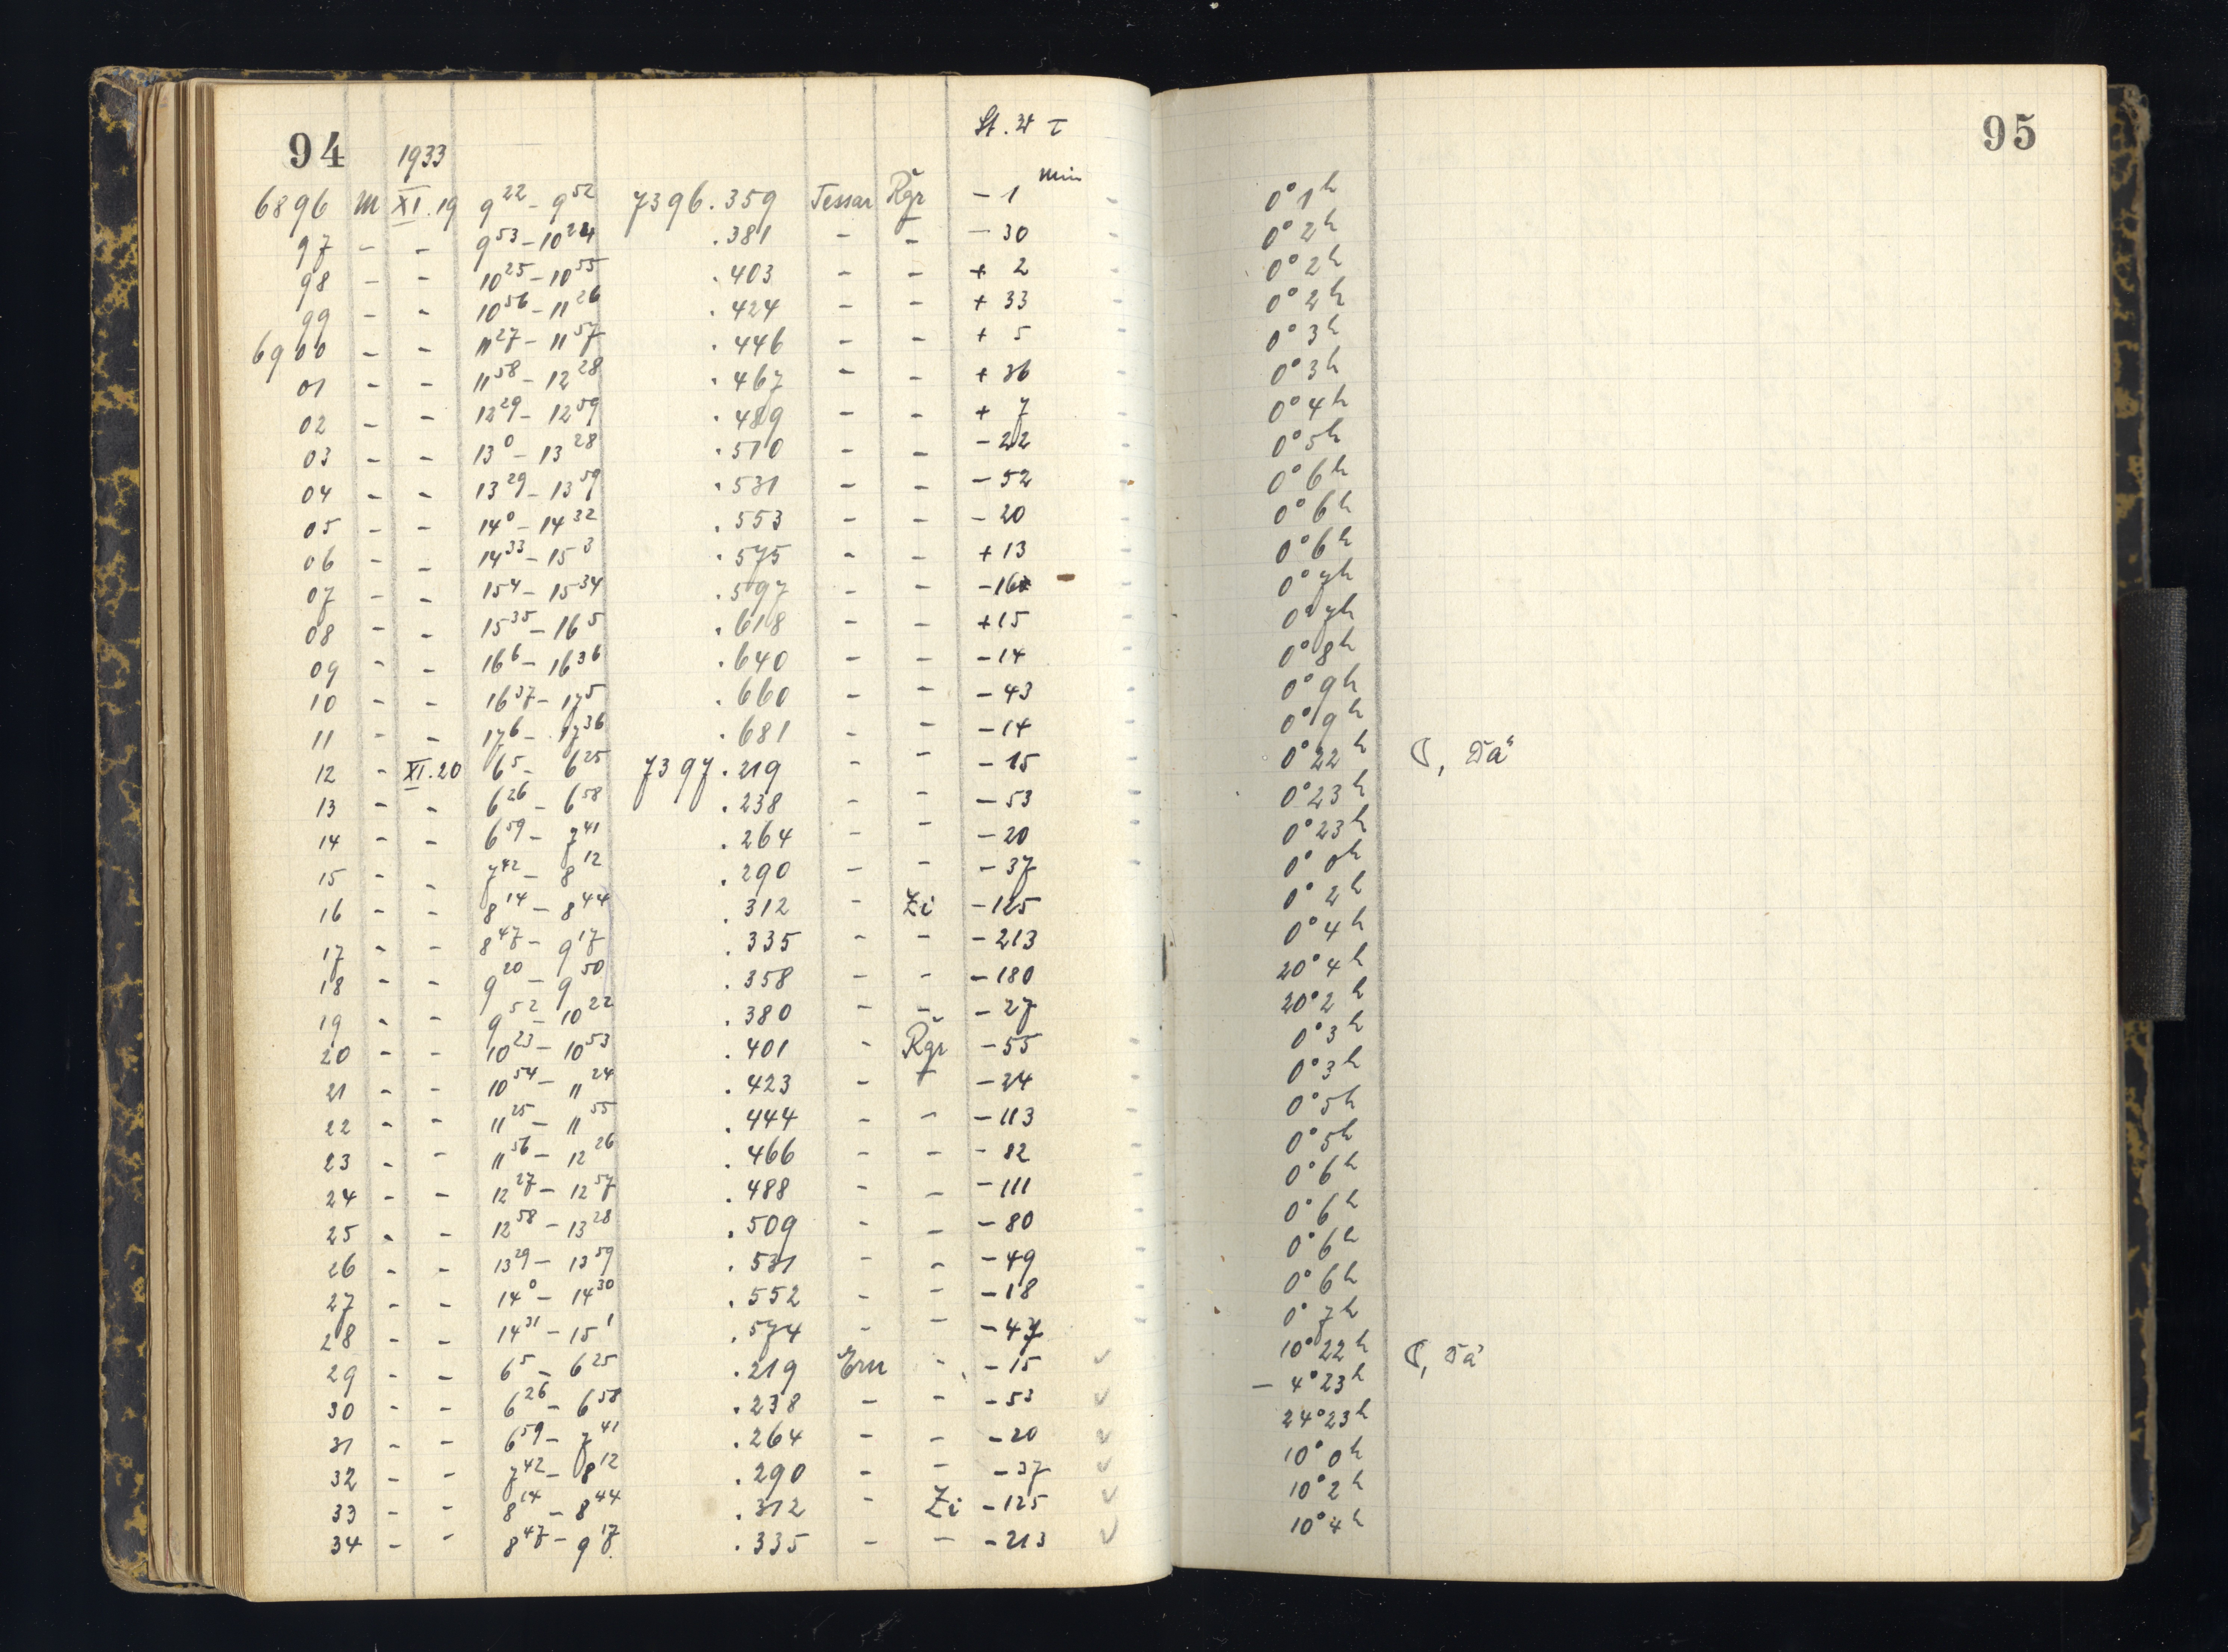 94 1933 St. W τ 95
min
6896 M XI.19 9 22 - 9 52 7396.359 Tessar Rgr - 1 0° 1 h
97 - - 9 53 - 10 24 .381 - - - 30 0° 2 h
98 - - 10 25 - 10 55 .403 - - + 2 0° 2 h
99 - - 10 56 - 11 26 .424 - - + 33 0° 2 h
6900 - - 11 27 - 11 57 .446 - - + 5 0° 3 h
01 - - 11 58 - 12 28 .467 - - + 36 0° 3 h
02 - - 12 29 - 12 59 .489 - - + 7 0° 4 h
03 - - 13 0 - 13 28 .510 - - - 22 0° 5 h
04 - - 13 29 - 13 59 .531 - - - 52 0° 6 h
05 - - 14 0 - 14 32 .553 - - - 20 0° 6 h
06 - - 14 33 - 15 3 .575 - - + 13 0° 6 h
07 - - 15 4 - 15 34 .597 - - - 16 0° 7 h
08 - - 15 35 - 16 5 .618 - - + 15 0° 7 h
09 - - 16 6 - 16 36 .640 - - - 14 0° 8 h
10 - - 16 37 - 17 5 .660 - - - 43 0° 9 h
11 - - 17 6 - 17 36 .681 - - - 14 0° 9 h
12 - XI.20 6 5 - 6 25 7397.219 - - - 15 0° 22 h ☾, Dä
13 - - 6 26 - 6 58 .238 - - - 53 0° 23 h
14 - - 6 59 - 7 41 .264 - - - 20 0° 23 h
15 - - 7 42 - 8 12 .290 - - - 37 0° 0 h
16 - - 8 14 - 8 44 .312 - Zi - 125 0° 2 h
17 - - 8 47 - 9 17 .335 - - - 213 0° 4 h
18 - - 9 20 - 9 50 .358 - - - 180 20° 4 h
19 - - 9 52 - 10 22 .380 - - - 27 20° 2 h
20 - - 10 23 - 10 53 .401 - Rgr - 55 0° 3 h
21 - - 10 54 - 11 24 .423 - - - 24 0° 3 h
22 - - 11 25 - 11 55 .444 - - - 113 0° 5 h
23 - - 11 56 - 12 26 .466 - - - 82 0° 5 h
24 - - 12 27 - 12 57 .488 - - - 111 0° 6 h
25 - - 12 58 - 13 28 .509 - - - 80 0° 6 h
26 - - 13 29 - 13 59 .531 - - - 49 0° 6 h
27 - - 14 0 - 14 30 .552 - - - 18 0° 6 h
28 - - 14 31 - 15 1 .574 - - - 47 0° 7 h
29 - - 6 5 - 6 25 .219 Ern - - 15 ✓ 10° 22 h ☾, Dä
30 - - 6 26 - 6 58 .238 - - - 53 ✓ - 4° 23 h
31 - - 6 59 - 7 41 .264 - - - 20 ✓ 24° 23 h
32 - - 7 42 - 8 12 .290 - - - 37 ✓ 10° 0 h
33 - - 8 14 - 8 44 .312 - Zi - 125 ✓ 10° 2 h
34 - - 8 47 - 9 17 .335 - - - 213 ✓ 10° 4 h